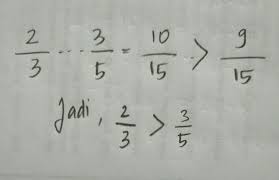 2/3 ... 3/5 = 10/15 > 9/15
Jadi, 2/3 > 3/5